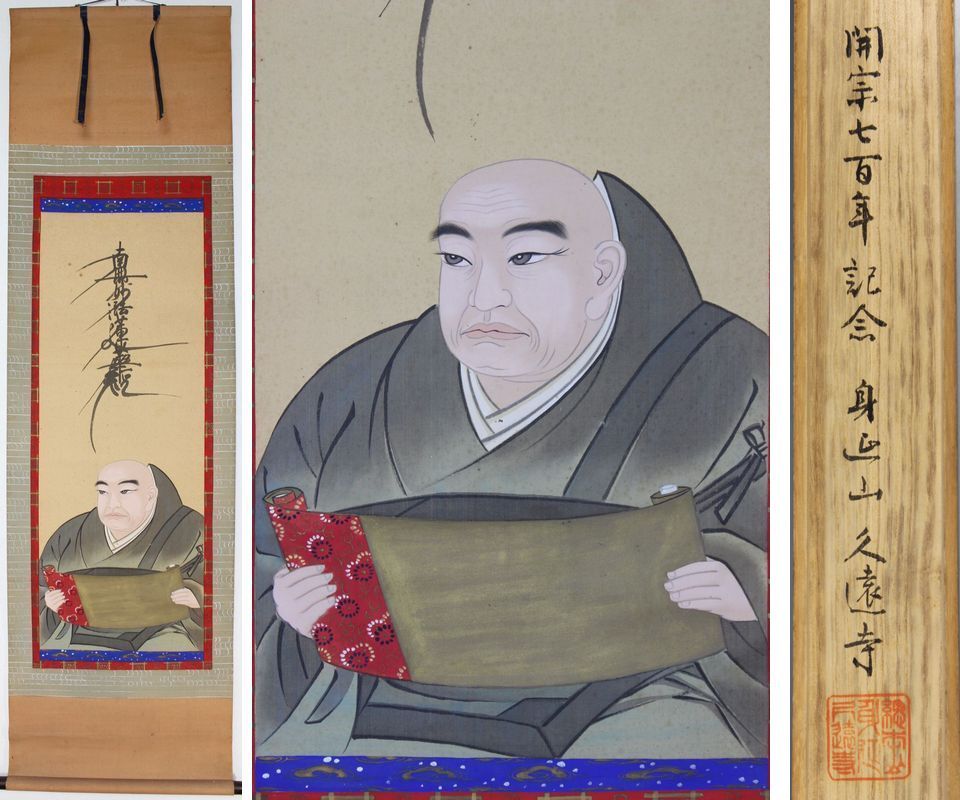 南無妙法蓮華経
開宗七百年 記念 身延山 久遠寺